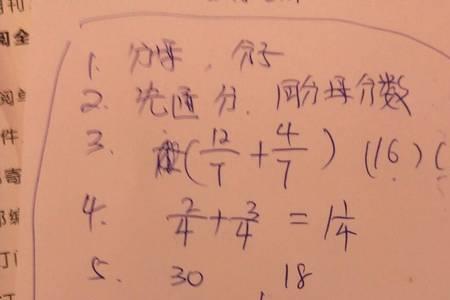 1. 分母, 分子
2. 先通分, 同分母分数
3. (12/7 + 4/7) (16) (
4. 2/4 + 3/4 = 1 1/4
5. 30 18